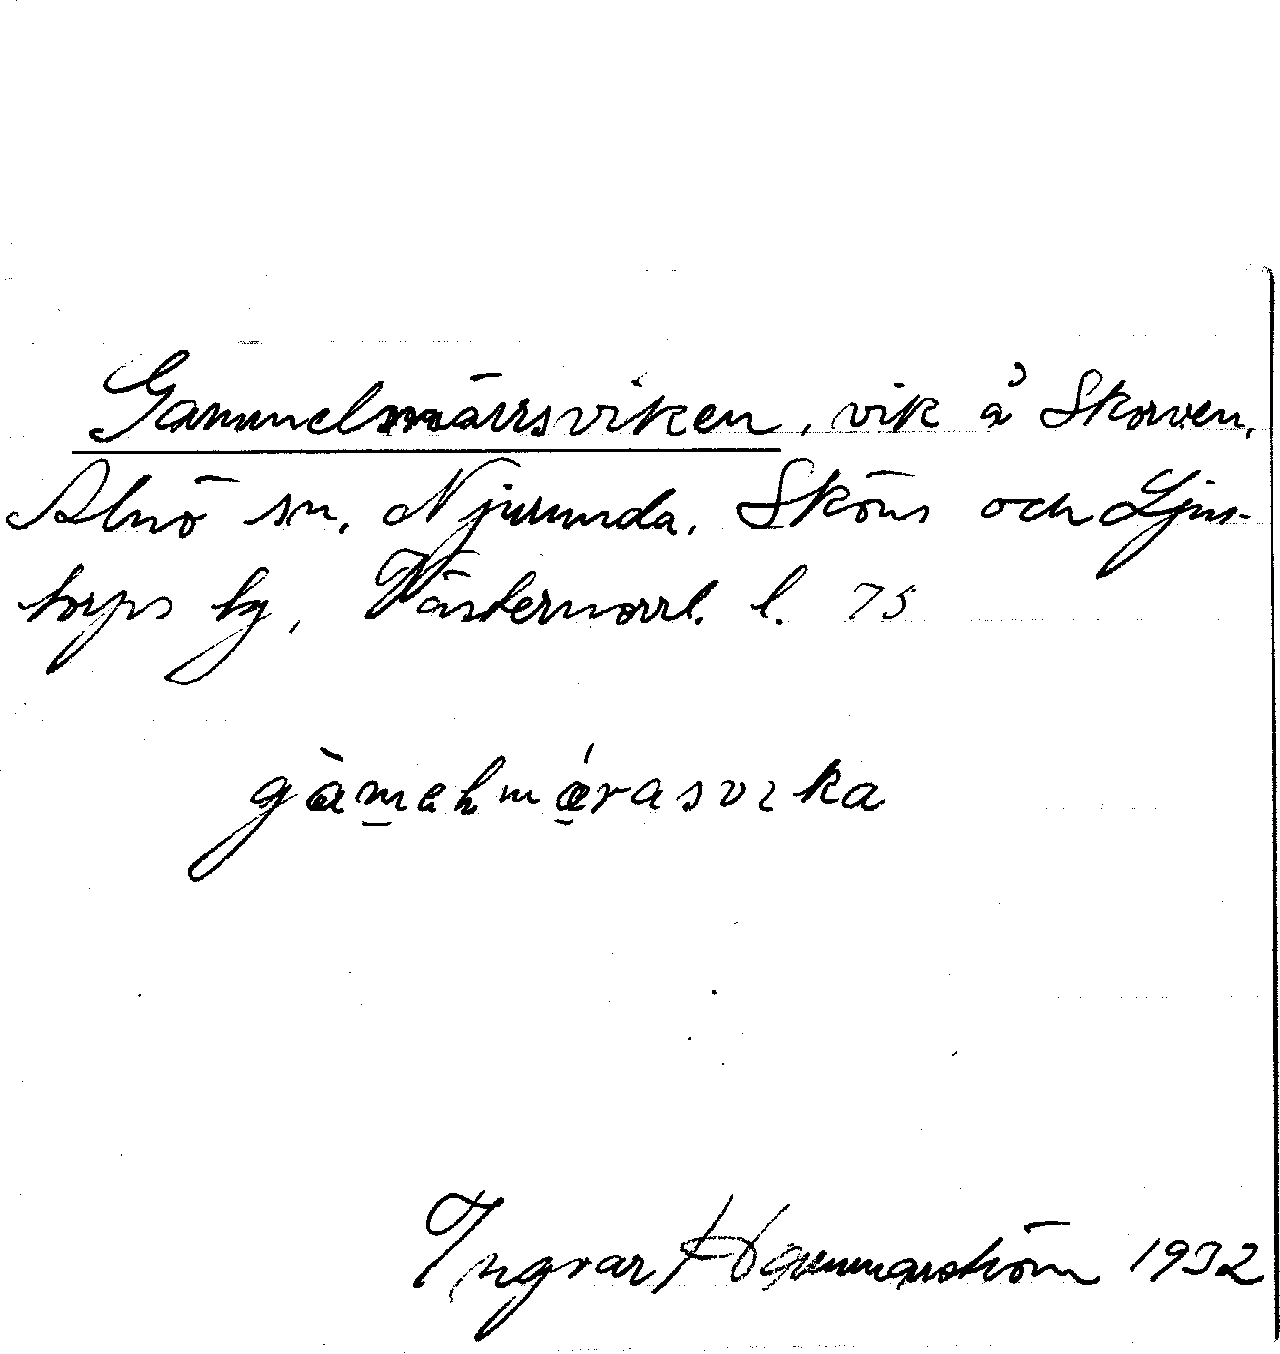 Gammelmärrsviken, vik å Skorven,
Alnö sn, Njurunda, Sköns och Ljus-
torps tg, Västernorrl. l. 75
gàmehmǽrasvika
Ingvar Hammarström 1932